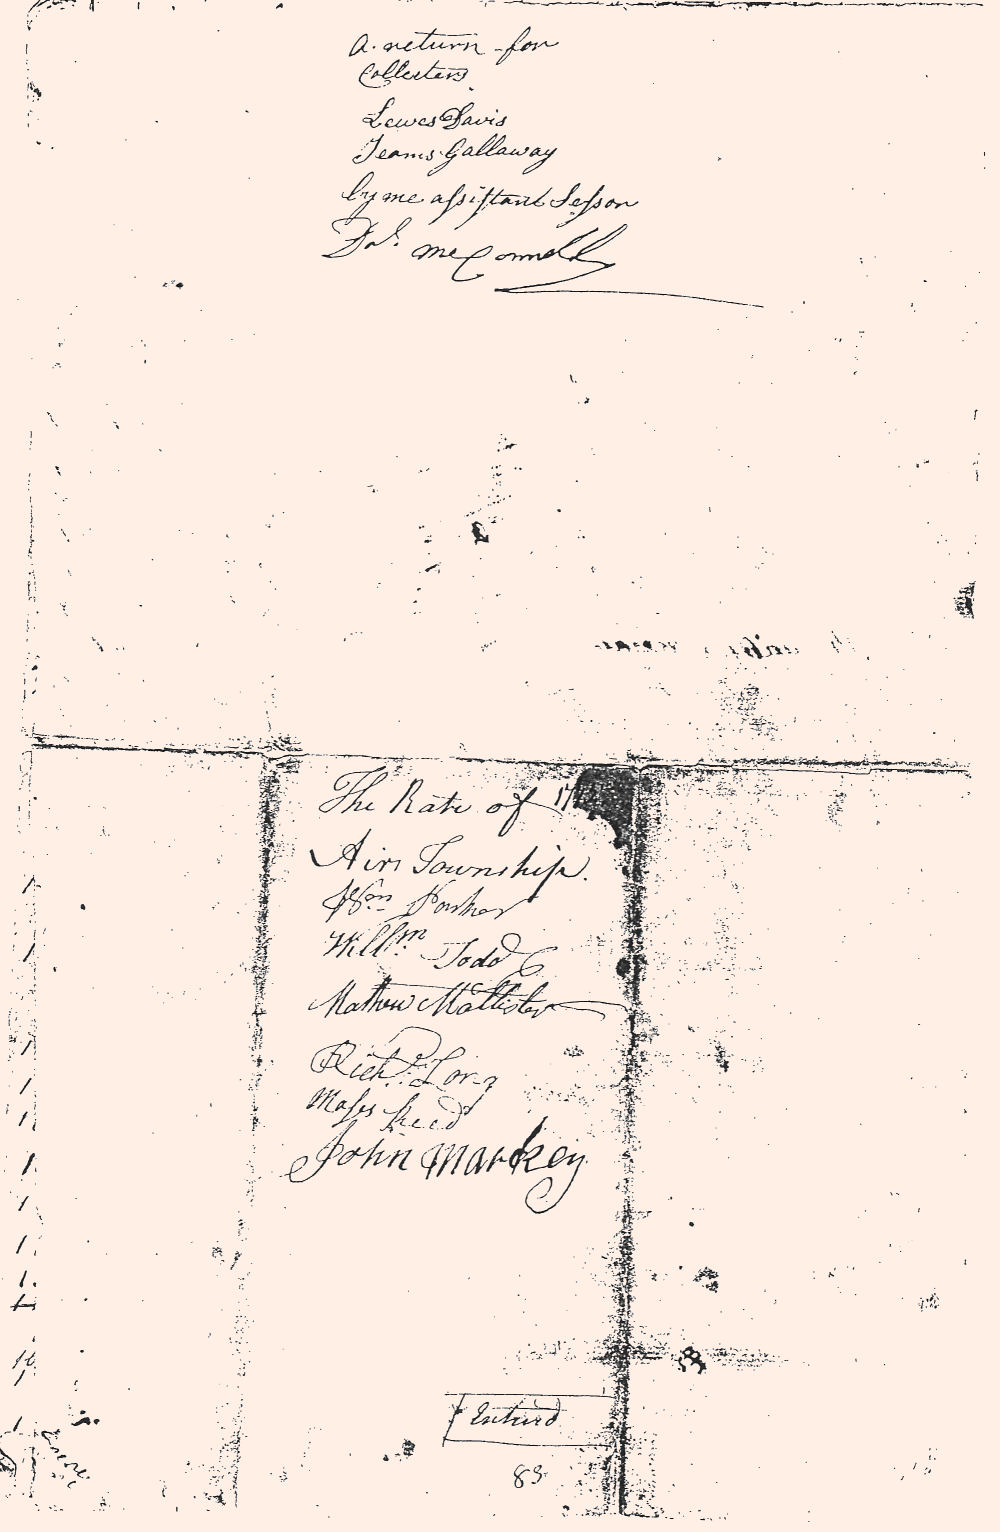 a return for
Collecters
Lewes Davis
Jeams Gallaway
by me assistant Sessor
Dal. McConnell
The Rate of 17
Airs Township.
Wm Parker
Willm Todd
Mathew McAllister
Richd. Long
Moses Reed
John Markey
Enterd
83